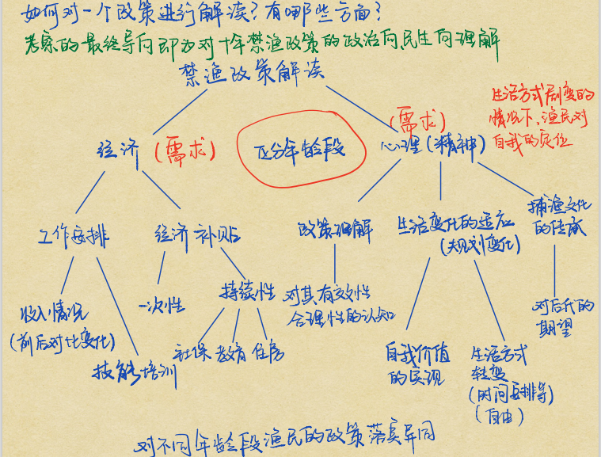 如何对一个政策进行解读?有哪些方面?
考察的最终导向即为对十年禁渔政策的政治向,民生向理解
禁渔政策解读
生活方式剧变的
情况下,渔民对
自我的定位
经济
(需求)
区分年龄段
(需求)
心理(精神)
工作安排
经济补贴
政策理解
生活变化的适应
(规划变化)
捕渔文化
的传承
收入情况
(前后对比变化)
技能培训
一次性
持续性
社保 教育 住房
对其有效性
合理性的认知
自我价值
的实现
生活方式
转变
(时间安排等)
(自由)
对后代的
期望
对不同年龄段渔民的政策落实异同